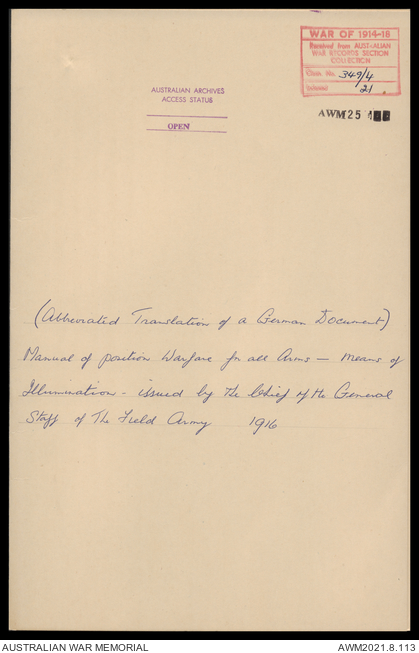 WAR OF 1914-18
Received from AUSTRALIAN
WAR RECORDS SECTION
COLLECTION
349/4
21
AUSTRALIAN ARCHIVES
ACCESS STATUS
OPEN
AWM25
(Abbreviated Translation of a German Document)
Manual of position Warfare for all Arms — Means of
Illumination - issued by the Chief of the General
Staff of The Field Army 1916
AUSTRALIAN WAR MEMORIAL
AWM2021.8.113